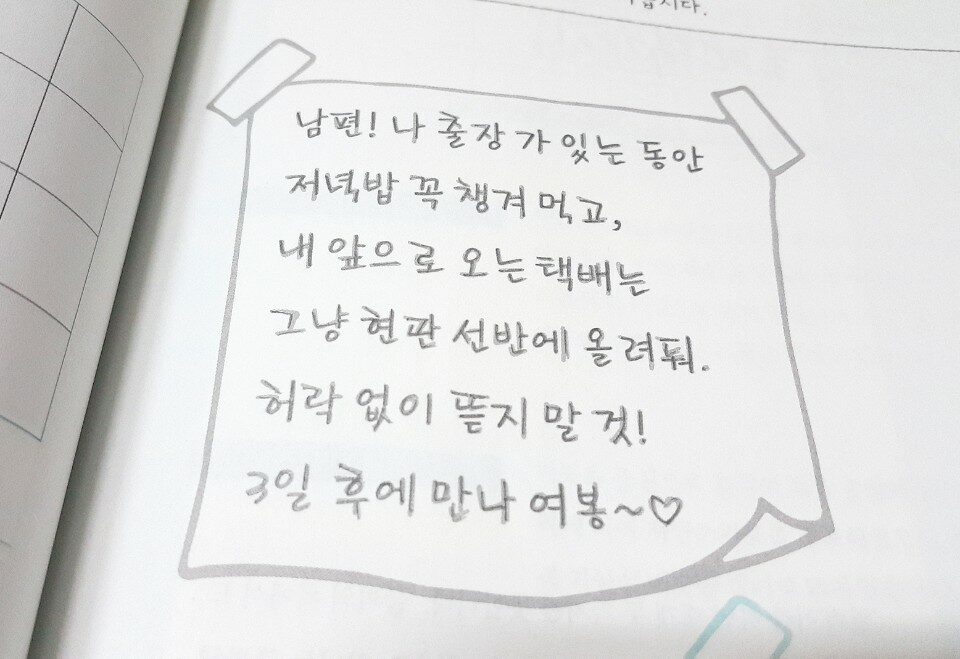 남편! 나 출장 가 있는 동안
저녁밥 꼭 챙겨 먹고,
내 앞으로 오는 택배는
그냥 현판 선반에 올려둬.
허락 없이 뜯지 말 것!
3일 후에 만나 여봉~♡